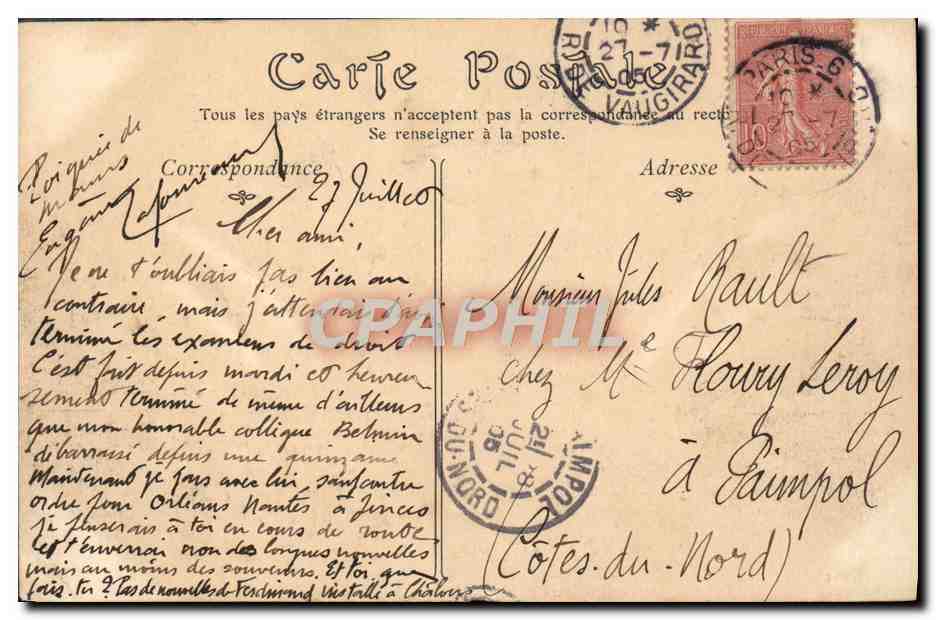 Carte Postale
Tous les pays étrangers n'acceptent pas la correspondance au recto
Se renseigner à la poste.
Correspondance
Adresse
PARIS
10 *
27 -7
05
R. DE VAUGIRARD
REPUBLIQUE FRANÇAISE
10
PARIS-6
10 *
27 -7
05
Poignée de
mains
27 Juillet 05
Mon cher ami,
Je ne t'oubliais pas bien au
contraire, mais j'attendais d'avoir
terminé les examens de droit
C'est fait depuis mardi et heureu
sement terminé de même d'ailleurs
que mon honorable collègue
débarrassé depuis une quinzaine
Maintenant je pars avec lui, sauf contre
ordre pour Orléans Nantes à
je penserais à toi en cours de route
et t'enverrai non des longues nouvelles
mais au moins des souvenirs. Et toi, que
fais-tu ? Pas de nouvelles de Ferdinand installé à Châlons
Monsieur Jules Rault
chez Me Floury Leroy
à Paimpol
(Côtes-du-Nord)
PAIMPOL
JUIL
05
DU-NORD
CPAPHIL